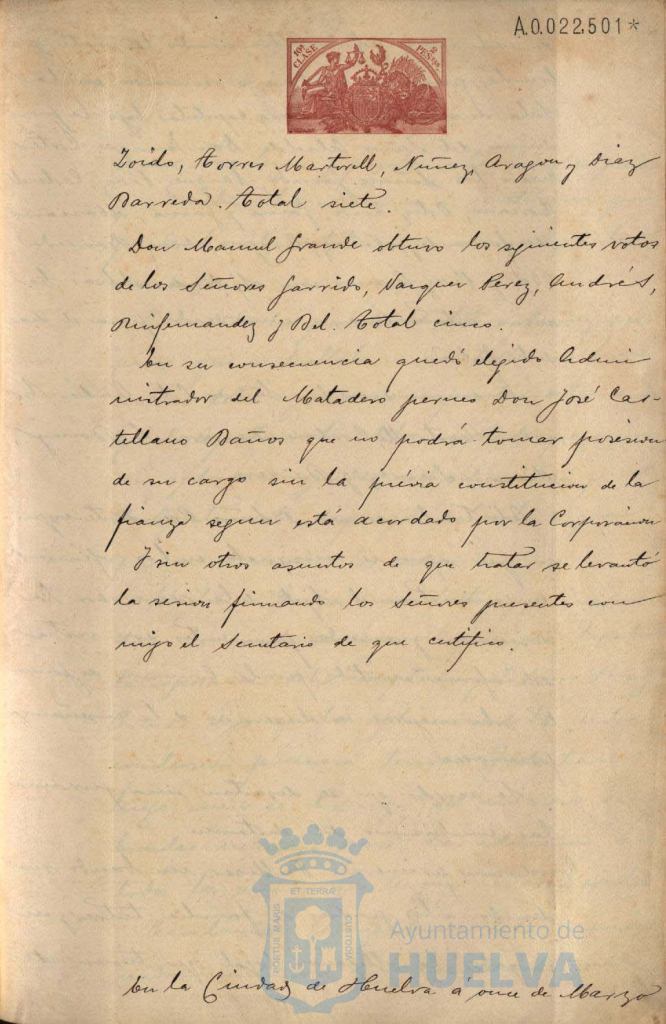 A.0.022.501*
10ª CLASE
2 PESTAS
Zoido, Torres Martorell, Nuñez, Aragon y Diaz
Barreda. Total siete.
Don Manuel Grande obtuvo los siguientes votos
de los Señores Garrido, Vazquez Perez, Andrés,
y Bel. Total cinco.
En su consecuencia quedó elegido Admi
nistrador del Matadero Don José Cas-
tellano Baños que no podrá tomar posesion
de su cargo sin la prévia constitucion de la
fianza segun está acordado por la Corporacion
Y sin otros asuntos de que tratar se levantó
la sesion firmando los Señores presentes con
migo el Secretario de que certifico.
ET TERRÆ
PORTUS MARIS
CUSTODIA
Ayuntamiento de
HUELVA
En la Ciudad de Huelva á once de Marzo